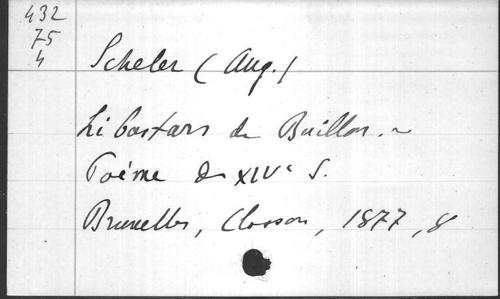 432
75
4
Scheler (Aug.)
Li bastars de Buillon. ~
Poéme du XIVe S.
Bruxelles, Closson, 1877, 8